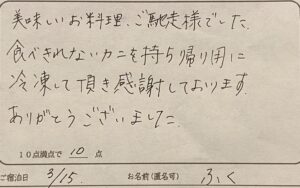 美味しいお料理、ご馳走様でした。
食べきれないカニを持ち帰り用に
冷凍して頂き感謝しております。
ありがとうございました。
10点満点で 10 点
ご宿泊日 3/15. お名前(匿名可) ふく